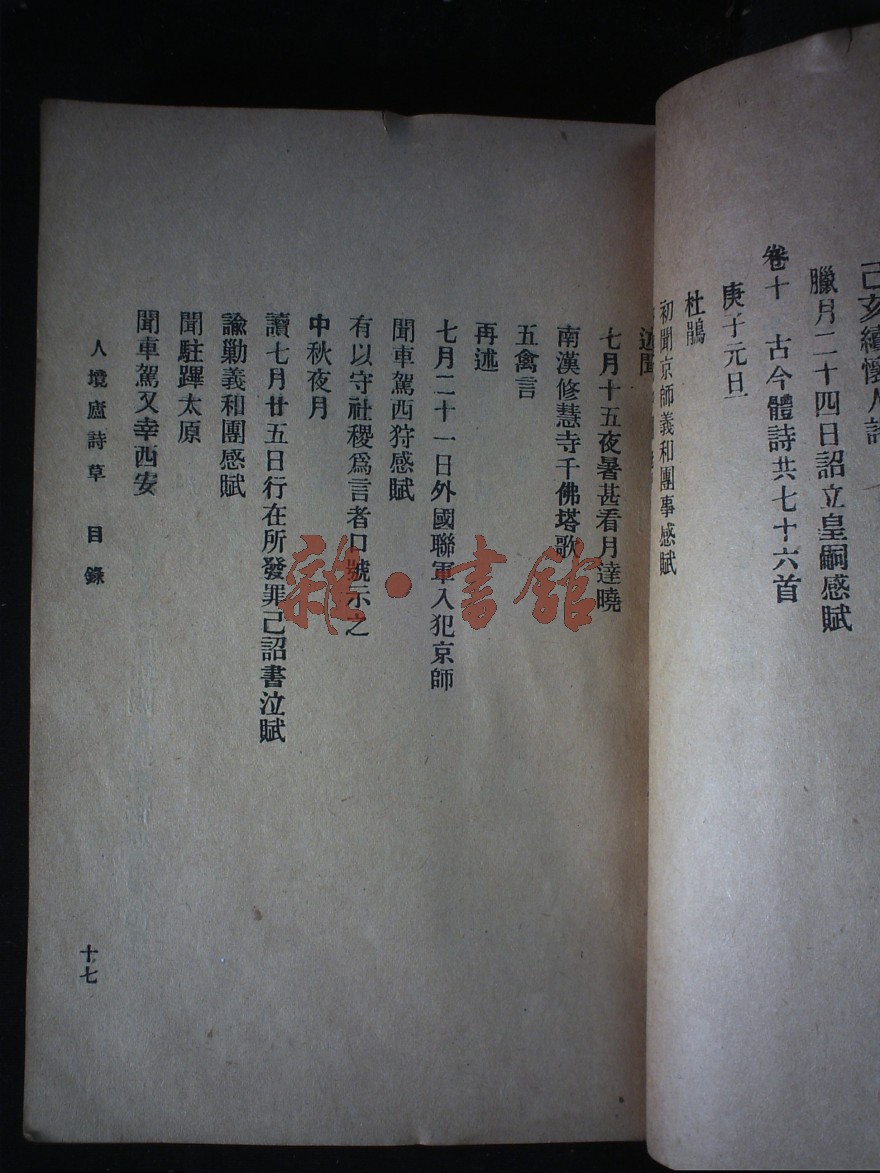 己亥續懷人詩
臘月二十四日詔立皇嗣感賦
卷十　古今體詩共七十六首
庚子元旦
杜鵑
初聞京師義和團事感賦
述聞
七月十五夜暑甚看月達曉
南漢修慧寺千佛塔歌
五禽言
再述
七月二十一日外國聯軍入犯京師
聞車駕西狩感賦
有以守社稷爲言者口號示之
中秋夜月
讀七月廿五日行在所發罪己詔書泣賦
諭勦義和團感賦
聞駐蹕太原
聞車駕又幸西安
人境廬詩草　目錄
十七
雜·書館